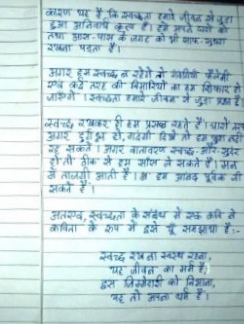 कारण यह है कि स्वच्छता हमारे जीवन से जुड़ा
हुआ अनिवार्य कृत्य है। हमें अपने घरों को
तथा आस-पास के जगह को भी साफ-सुथरा
रखना पड़ता है।
अगर हम स्वच्छ न रहेंगे तो
कई तरह की बिमारियों का हम शिकार हो
जाएंगे। स्वच्छता हमारे जीवन से जुड़ा
स्वच्छ रखकर ही हम प्रसन्न रहते हैं। चारों तरफ
अगर कूड़ा हो, गंदगी दिखे तो हम खुश नहीं
रह सकते। अगर वातावरण स्वच्छ और सुंदर
हो तो ठीक से हम सांस ले सकते हैं। मन
में ताजगी आती है। हम आनंद पूर्वक जी
सकते हैं।
अतएव, स्वच्छता के संबंध में एक कवि ने
कविता के रूप में इसे यूं समझाया है:-
स्वच्छ रखना स्वस्थ रहना,
यह जीवन का मर्म है,
इस जिम्मेदारी को निभाना,
यह तो अपना धर्म है।